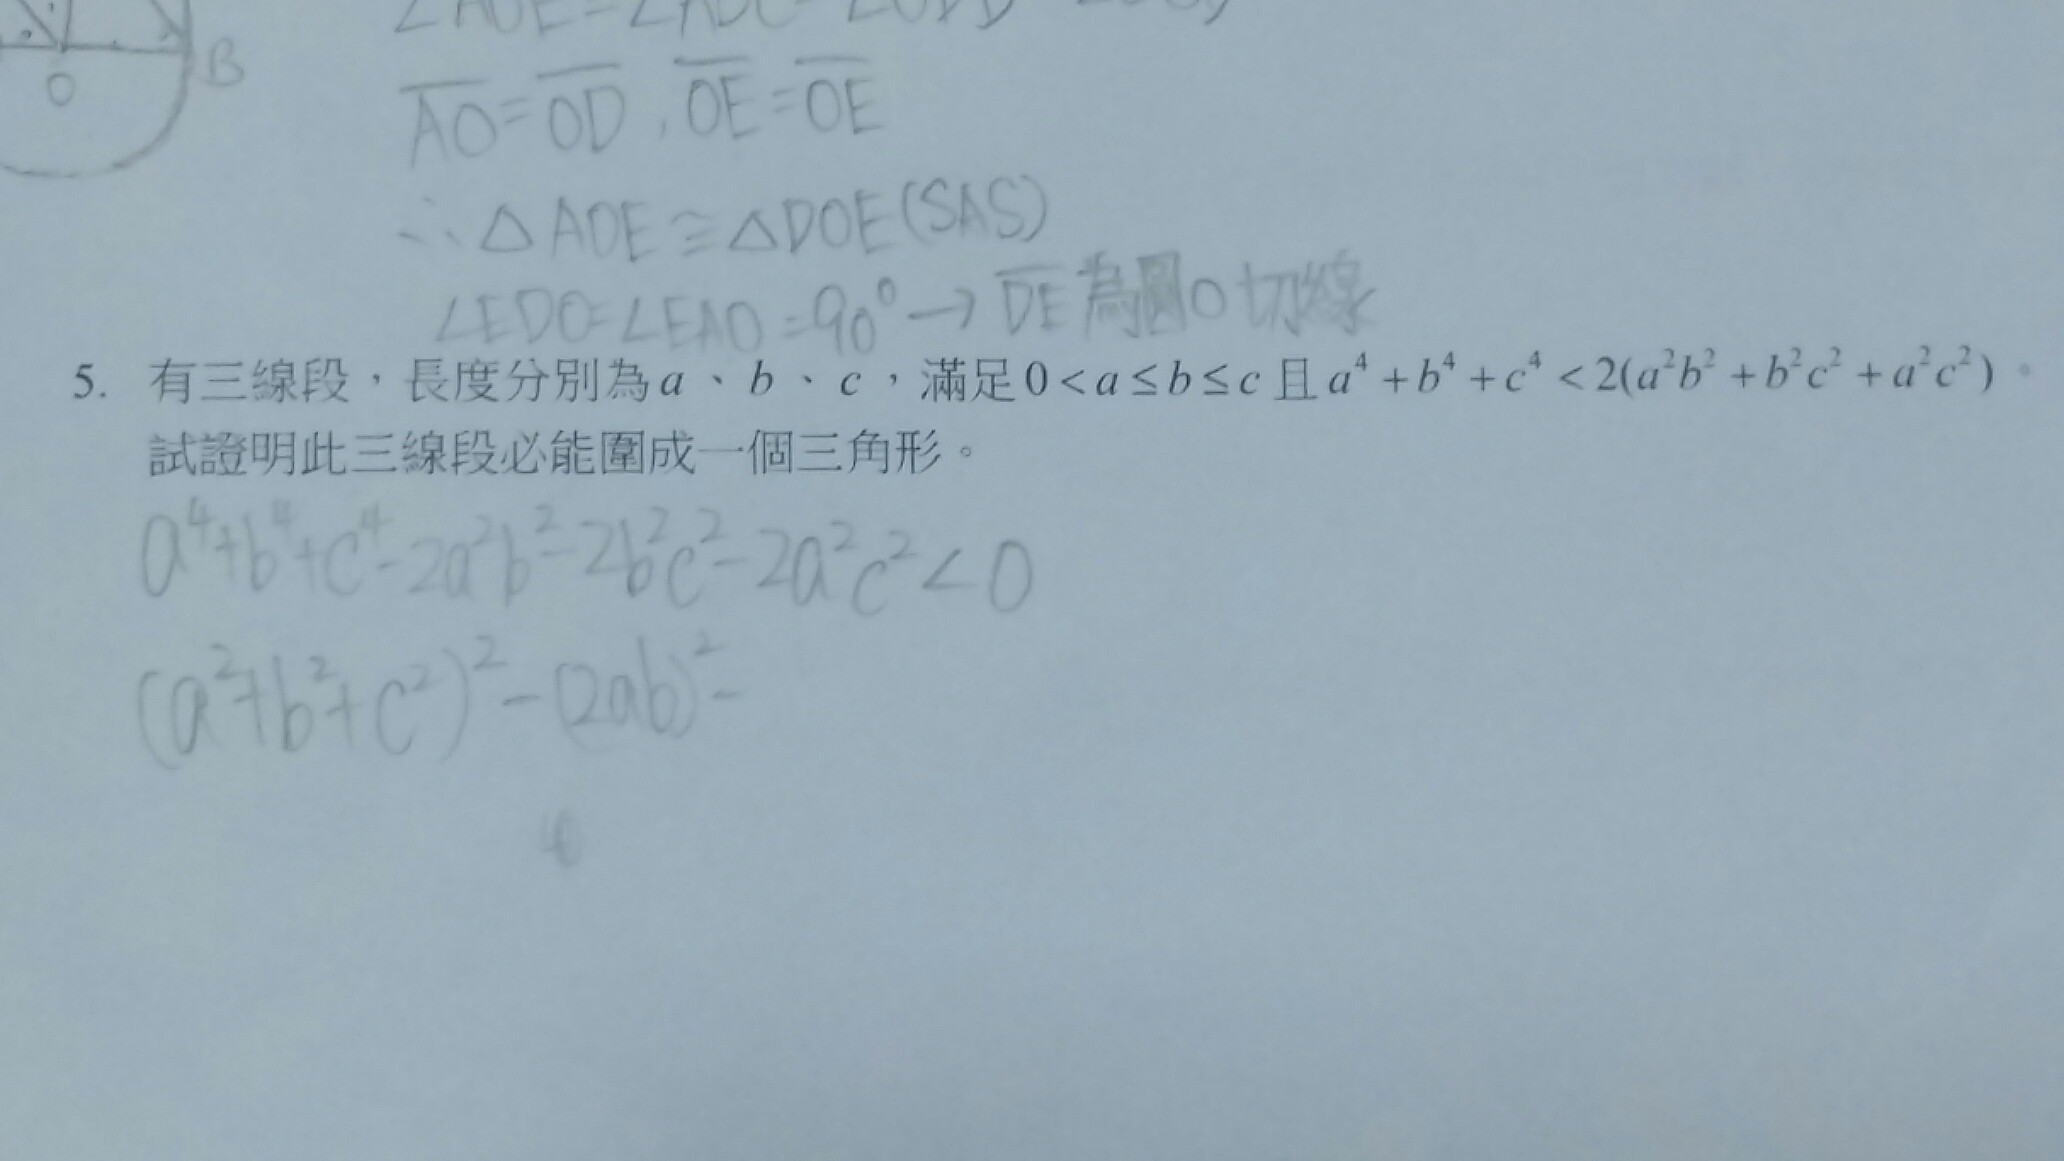 ∠AOE=∠
B
O
AO=OD, OE=OE
∴ △AOE≅△DOE(SAS)
∠EDO=∠EAO=90°→DE為圓O切線
5. 有三線段，長度分別為a、b、c，滿足0<a≤b≤c且a⁴+b⁴+c⁴<2(a²b²+b²c²+a²c²)。
試證明此三線段必能圍成一個三角形。
a⁴+b⁴+c⁴-2a²b²-2b²c²-2a²c²<0
(a²+b²+c²)²-(2ab)²-